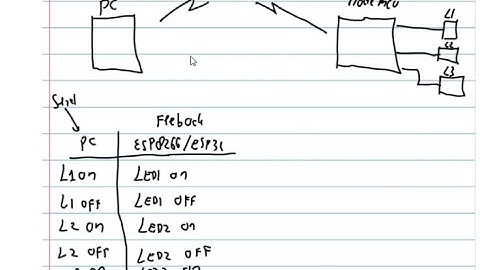 PC
L1
L2
L3
Feeback
PC ESP8266/ESP32
L1 on LED1 on
L1 OFF LED1 OFF
L2 on LED2 on
L2 OFF LED2 OFF